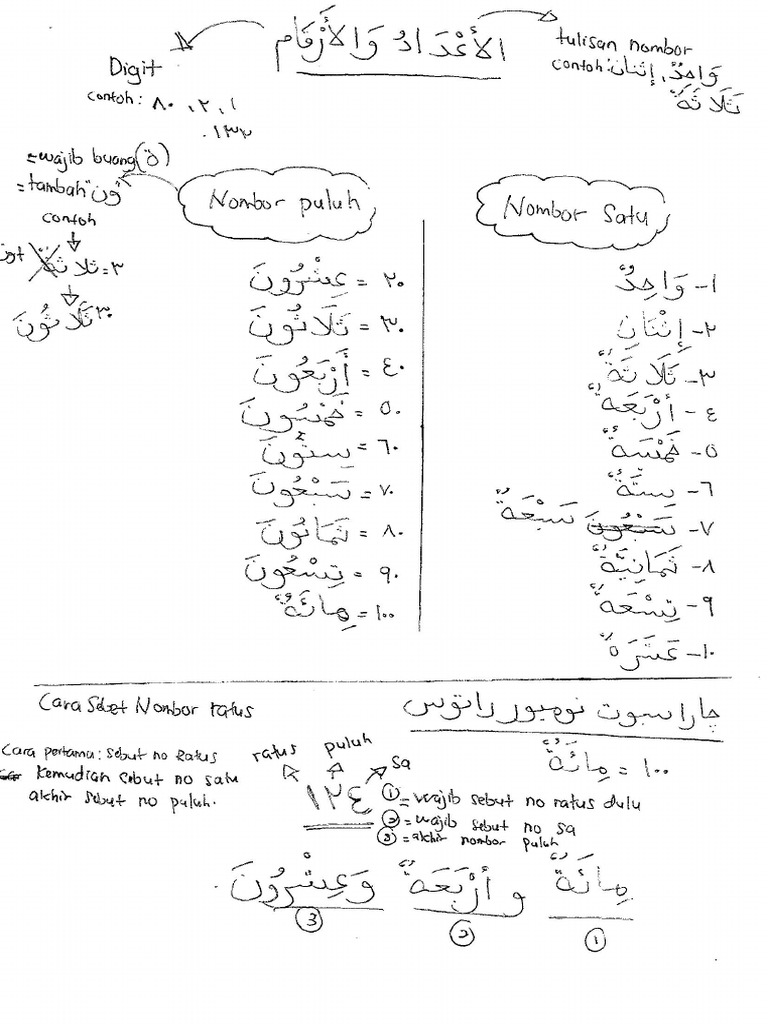 الأَعْدَادُ وَالأَرْقَام
tulisan nombor
contoh: وَاحِدٌ، إثنان
ثَلَاثَةٌ
Digit
contoh: ٨٠ ،٢ ،١
.١٣٢
=wajib buang (ة)
=tambah "ون"
contoh
٣=ثلاثة
٣٠ ثَلَاثُونَ
Nombor puluh
٢٠ = عِشْرُونَ
٣٠ = ثَلَاثُونَ
٤٠ = أَرْبَعُونَ
٥٠ = خَمْسُونَ
٦٠ = سِتُّونَ
٧٠ = سَبْعُونَ
٨٠ = ثَمَانُونَ
٩٠ = تِسْعُونَ
١٠٠ = مِائَةٌ
Nombor Satu
١- وَاحِدٌ
٢- إِثْنَانِ
٣- ثَلَاثَةٌ
٤- أَرْبَعَةٌ
٥- خَمْسَةٌ
٦- سِتَّةٌ
٧- سَبْعُونَ سَبْعَةٌ
٨- ثَمَانِيَّةٌ
٩- تِسْعَةٌ
١٠- عَشَرَةٌ
Cara Sebet Nombor ratus
چارا سبوت نومبور راتوس
Cara pertama: sebut no Ratus
kemudian sebut no satu
akhir sebut no puluh.
ratus puluh sa
١٢٤
١٠٠ = مِائَةٌ
① = wajib sebut no ratus dulu
② = wajib sebut no sa
③ = akhir nombor puluh
مِائَةٌ و أَرْبَعَةٌ وَعِشْرُونَ
① ② ③